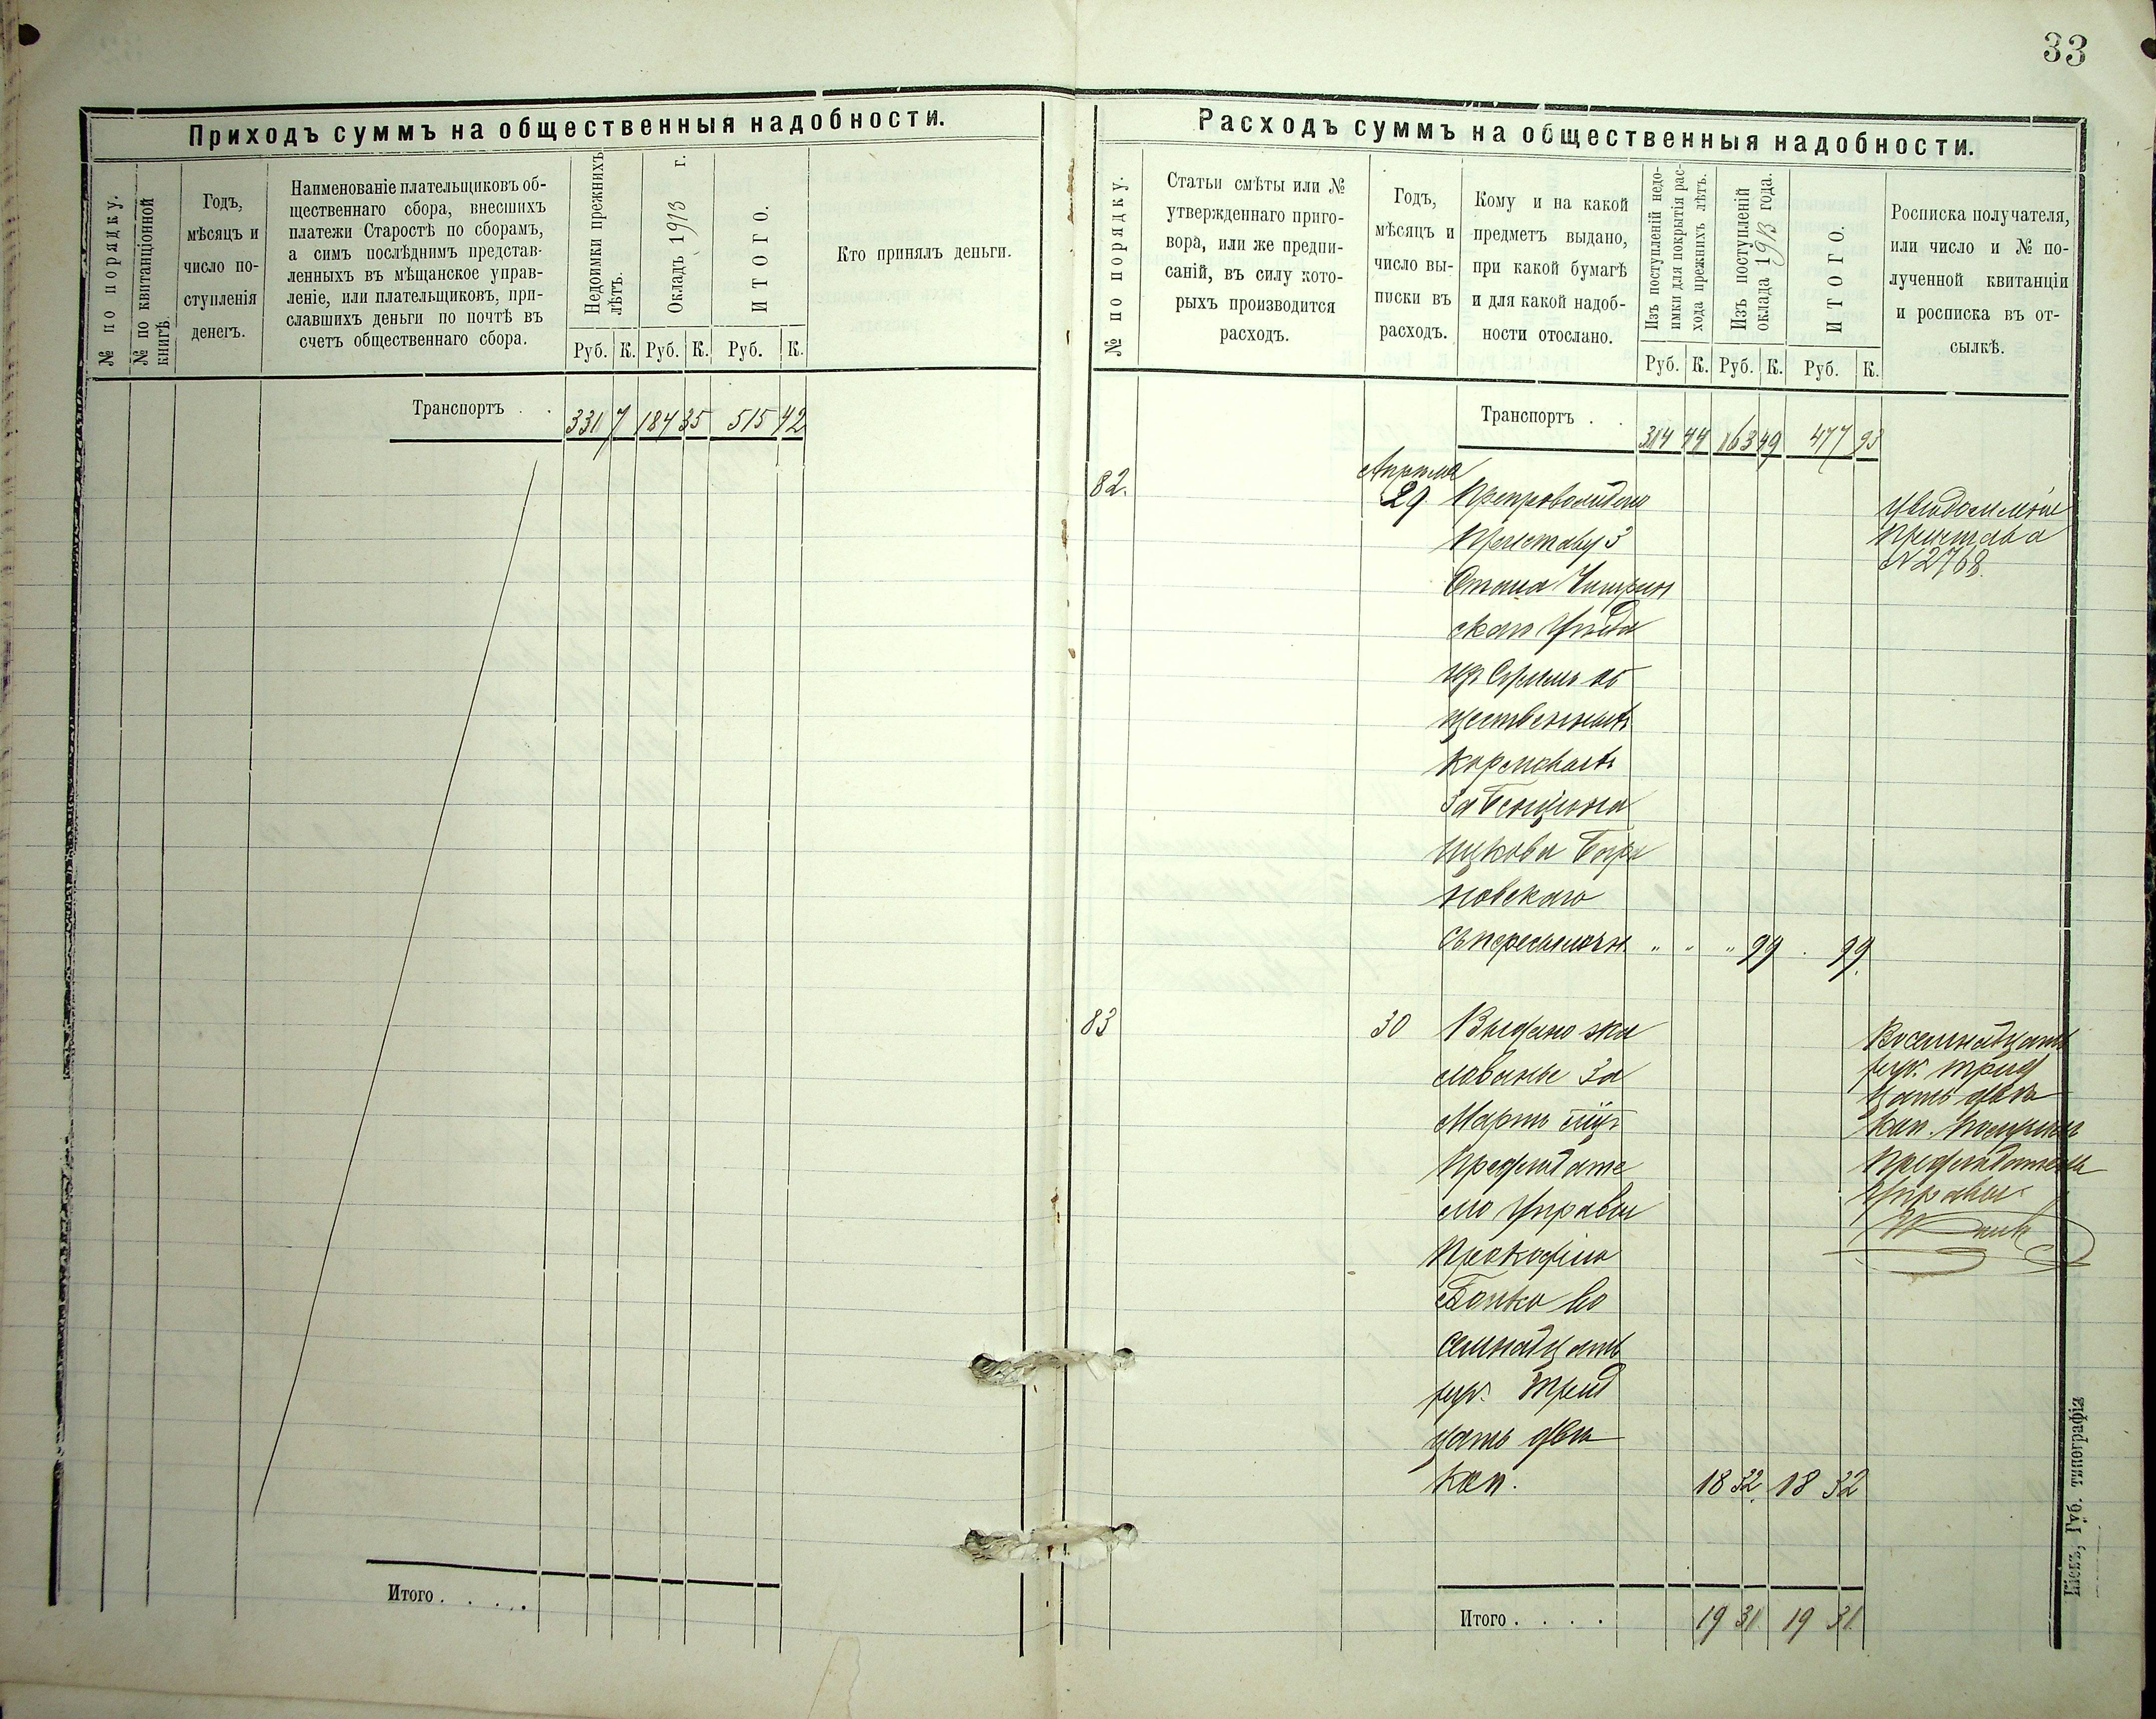 33
Приходъ суммъ на общественныя надобности.
№ по порядку.
№ по квитанціонной
книгѣ.
Годъ,
мѣсяцъ и
число по-
ступленія
денегъ.
Наименованіе плательщиковъ об-
щественнаго сбора, внесшихъ
платежи Старостѣ по сборамъ,
а симъ послѣднимъ представ-
ленныхъ въ мѣщанское управ-
леніе, или плательщиковъ, при-
славшихъ деньги по почтѣ въ
счетъ общественнаго сбора.
Недоимки прежнихъ
лѣтъ.
Окладъ 1913 г.
ИТОГО.
Руб. К. Руб. К. Руб. К.
Кто принялъ деньги.
Транспортъ . . 331 7 184 35 515 42
Итого . . . . .
Расходъ суммъ на общественныя надобности.
№ по порядку.
Статьи смѣты или №
утвержденнаго приго-
вора, или же предпи-
саній, въ силу кото-
рыхъ производится
расходъ.
Годъ,
мѣсяцъ и
число вы-
писки въ
расходъ.
Кому и на какой
предметъ выдано,
при какой бумагѣ
и для какой надоб-
ности отослано.
Изъ поступленій недо-
имки для покрытія рас-
хода прежнихъ лѣтъ.
Изъ поступленій
оклада 1913 года.
ИТОГО.
Руб. К. Руб. К. Руб. К.
Росписка получателя,
или число и № по-
лученной квитанціи
и росписка въ от-
сылкѣ.
Транспортъ . . 314 44 163 49 477 93
82. Апрѣля
29. Препровождено
Приставу 3
Стана Чигрин
скаго Уѣзда
щественныхъ
кормовыхъ
новскаго
съ пересылочн. " " " 99 . 99.
Увѣдомленіе
Пристава
№ 2768.
83 30 Выдано жа
лованье За
Мартъ мц.
Предсѣдате
лю Управы
Прокофію
во
семнадцать
руб. трид
цать двѣ
коп. 18 32. 18 32
Восемнадцать
руб. трид
цать двѣ
коп. получилъ
Предсѣдатель
Управы
Итого . . . . 19 31 19 31
Кіевъ, Губ. типографія